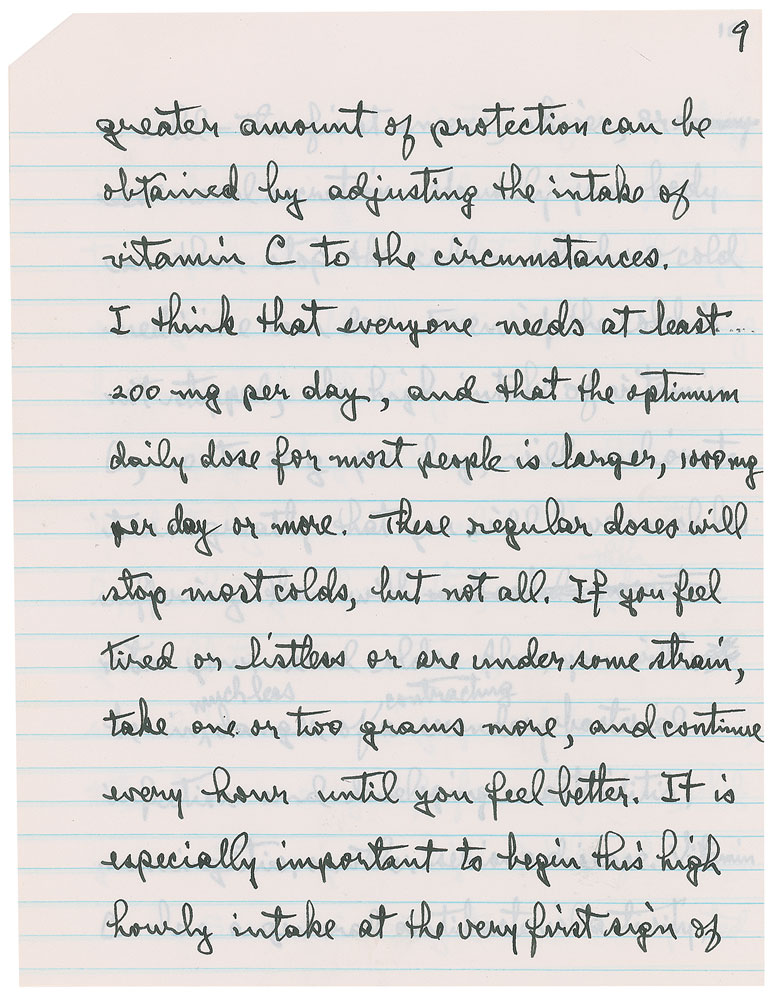 9
greater amount of protection can be
obtained by adjusting the intake of
vitamin C to the circumstances.
I think that everyone needs at least
200 mg per day, and that the optimum
daily dose for most people is larger, 1000 mg
per day or more. These regular doses will
stop most colds, but not all. If you feel
tired or listless or are under some strain,
take one or two grams more, and continue
every hour until you feel better. It is
especially important to begin this high
hourly intake at the very first sign of